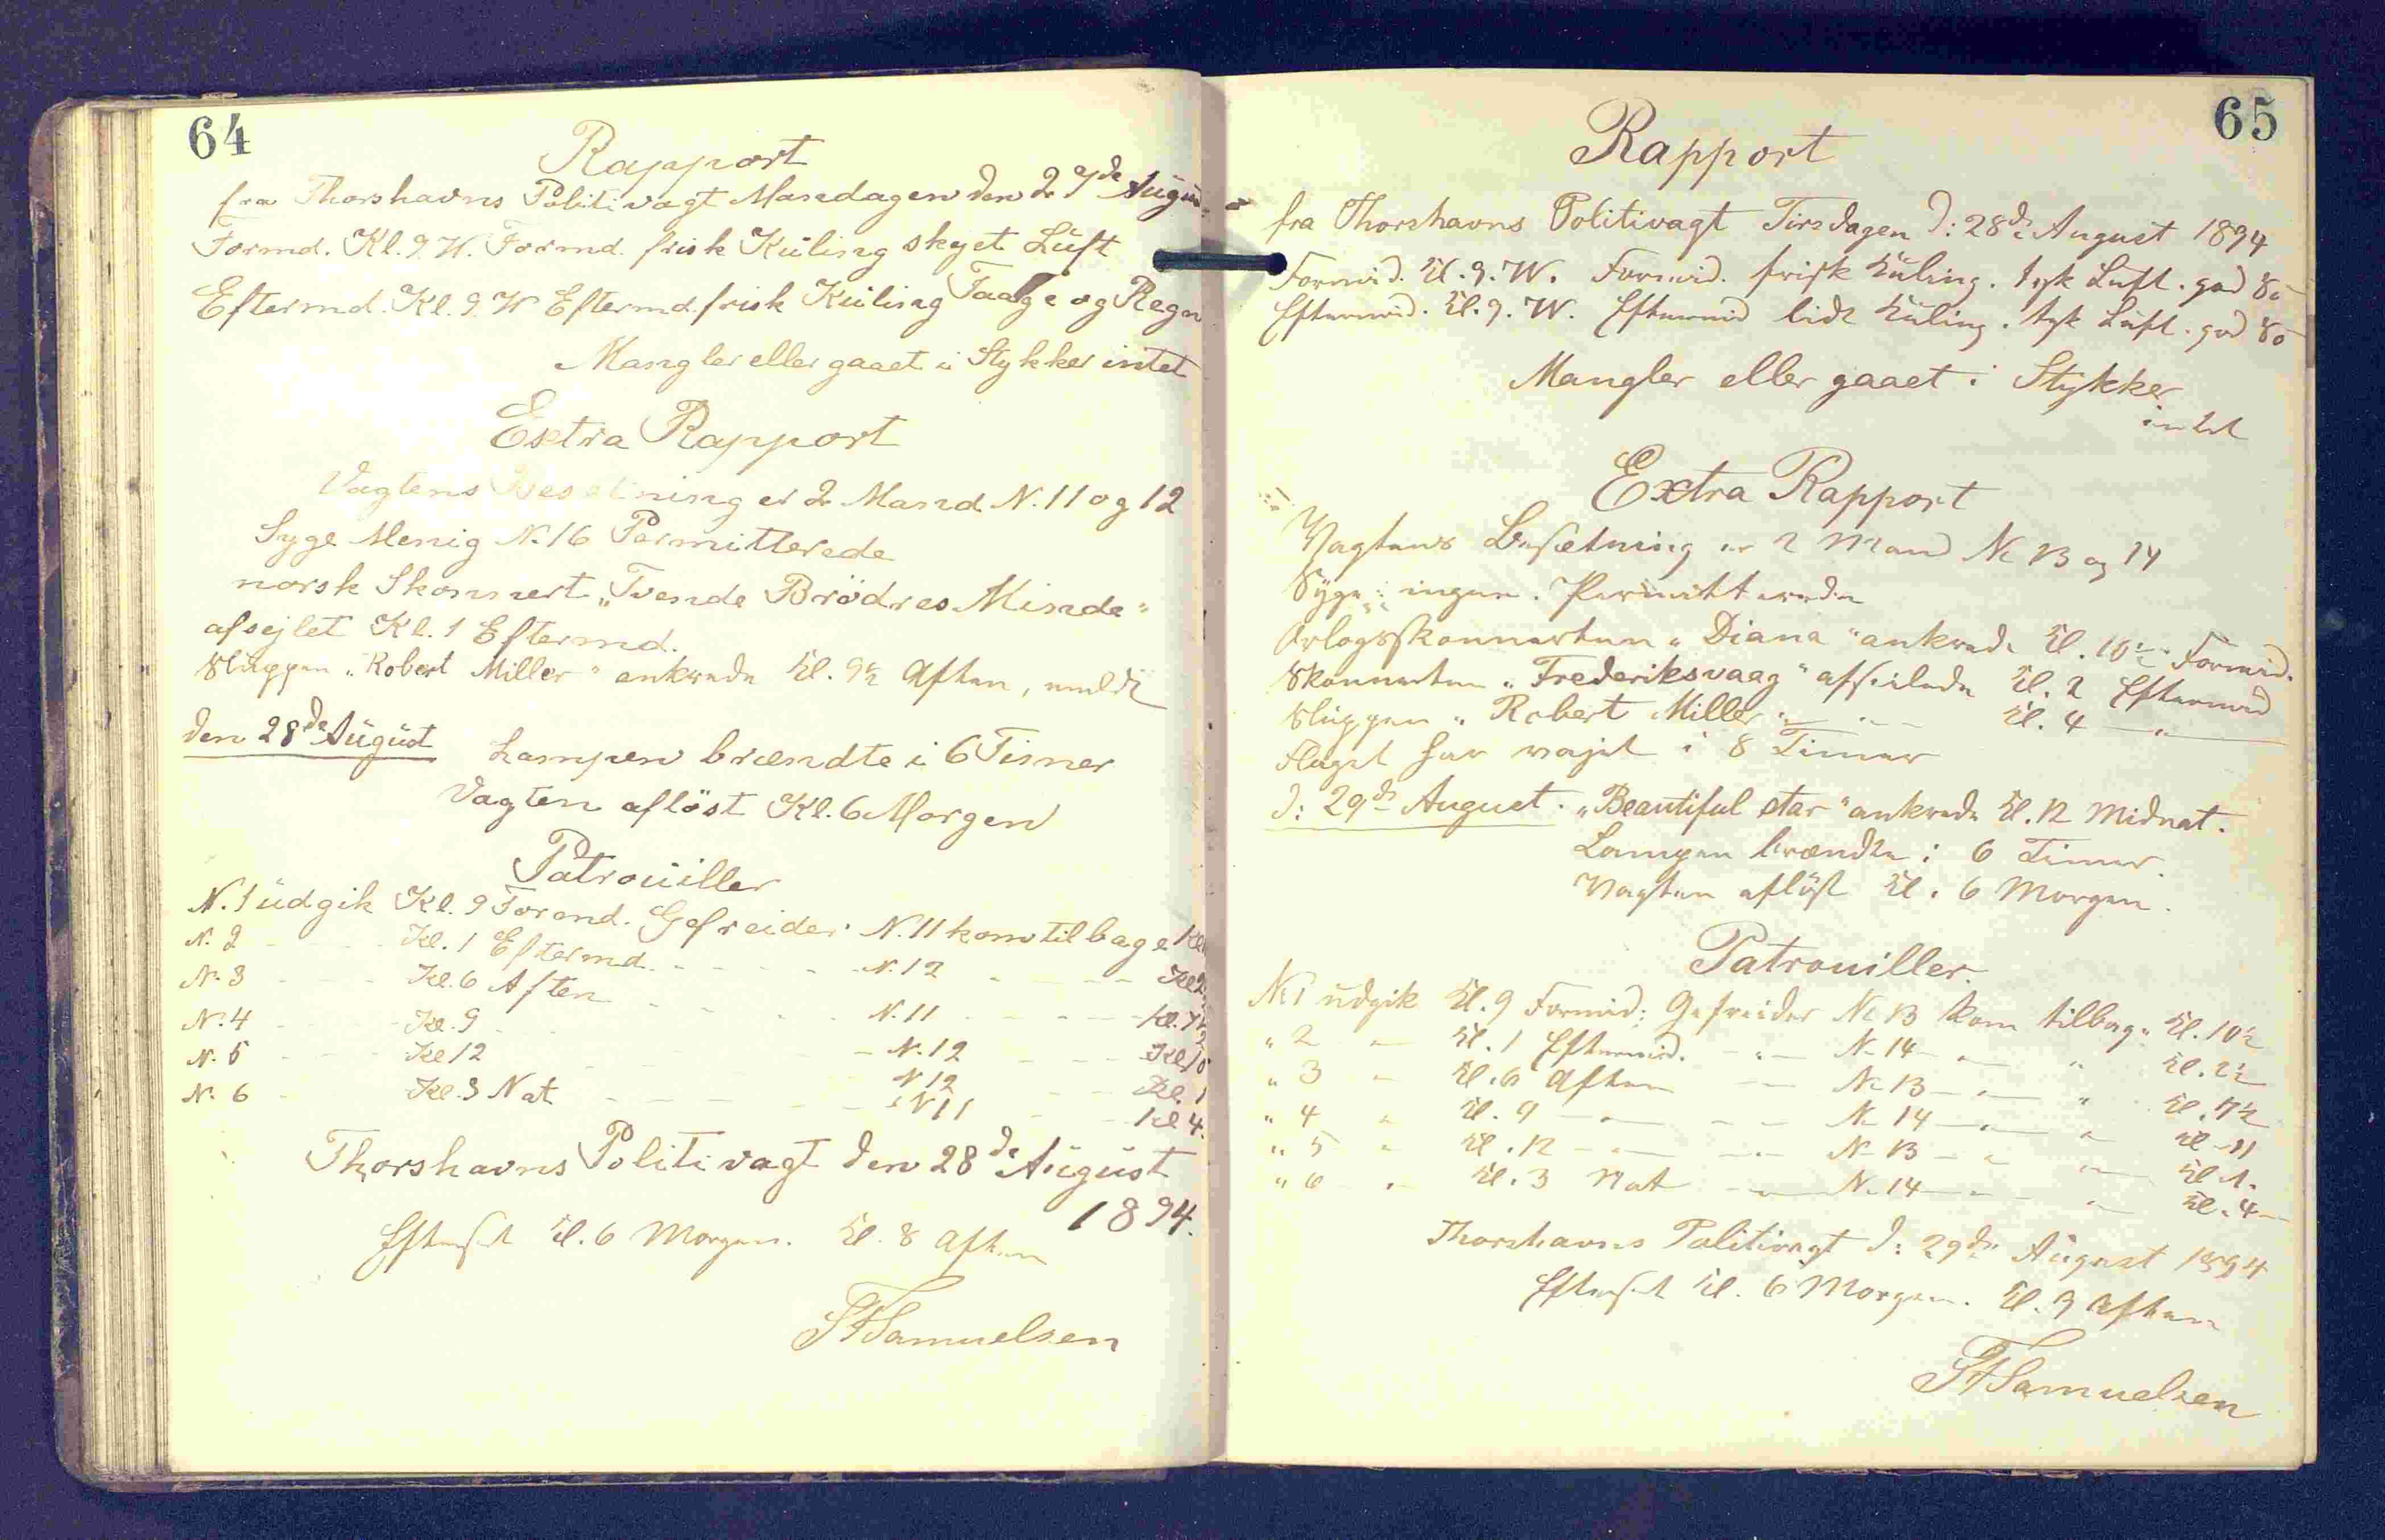 64
Rapport
fra Thorshavns Politivagt Mandagen den 27de August
Formd. Kl. 9. W. Formd. frisk Küling skyet Lüft
Eftermd. Kl. 9. W Eftermd. frisk Küling Taage og Regn
Mangler eller gaaet i Stykker intet
Extra Rapport
Vagtens Besetning er 2 Mand N. 11 og 12
Syge Menig N. 16 Permitterede
norsk Skonnert „Tvende Brödres Minde"
afsejlet Kl. 1 Eftermd.
Sluppen „Robert Miller" ankrede Kl. 9½ Aften, meldt
den 28de August
Lampen brændte i 6 Timer
Vagten aflöst Kl. 6 Morgen
Patrouiller
N. 1 üdgik Kl. 9 Formd. Gefreider N. 11 kom tilbage Kl
N. 2 Kl. 1 Eftermd. N. 12 Kl 2
N. 3 Kl. 6 Aften N. 11 Kl. 7½
N. 4 Kl. 9 N. 12 Kl 10
N. 5 Kl 12 N 12 Kl. 1
N. 6 Kl. 3 Nat N 11 Kl 4.
Thorshavns Politivagt den 28de August
1894.
Efterset Kl. 6 Morgen. Kl. 8 Aften
Samuelsen
65
Rapport
fra Thorshavns Politivagt Tirsdagen d: 28de August 1894
Formid. Kl. 9. W. Formid. frisk Küling. tyk Lüft. god Sö
Eftermid. Kl. 9. W. Eftermid lidt Küling. tyk Lüft. god Sö
Mangler eller gaaet i Stykker
intet
Extra Rapport
Vagtens Besætning er 2 Mand No 13 og 14
Syge: ingen. Permitterede
Orlogsskonnerten „Diana" ankrede Kl. 10½ Formid.
Skonnerten „Frederiksvaag" afseilede Kl. 2 Eftermid
Sluppen „Robert Miller" — " — Kl. 4 — " —
Flaget har vajet i 8 Timer
d: 29de August. „Beautiful star" ankrede Kl. 12 Midnat.
Lampen brændte i 6 Timer.
Vagten aflöst Kl. 6 Morgen.
Patrouiller.
No 1 üdgik Kl. 9 Formid: Gefreider No 13 kom tilbage Kl. 10½
" 2 " Kl. 1 Eftermid. — " — No 14 — " — " Kl. 2½
" 3 " Kl. 6 Aften — " — No 13 — " — " Kl. 7½
" 4 " Kl. 9 — " — " — No 14 — " — " Kl. 11
" 5 " Kl. 12 — " — " — No 13 — " — " Kl. 1.
" 6 " Kl. 3 Nat — " — No 14 — " — " Kl. 4
Thorshavns Politivagt d: 29de August 1894
Efterset Kl. 6 Morgen. Kl. 9 Aften
Samuelsen